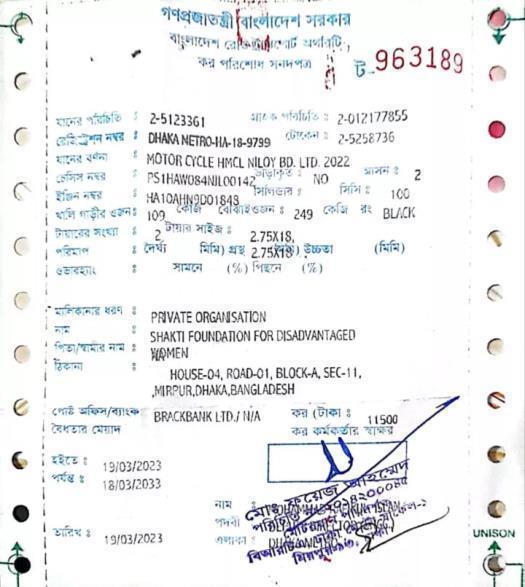 গণপ্রজাতন্ত্রী বাংলাদেশ সরকার
বাংলাদেশ রোড ট্রান্সপোর্ট অথরিটি,
কর পরিশোধ সনদপত্র
ট- 963189
যানের পরিচিতি : 2-5123361 গ্রাহক পরিচিতি : 2-012177855
রেজিস্ট্রেশন নম্বর : DHAKA NETRO-HA-18-9799 টোকেন : 2-5258736
যানের বর্ণনা : MOTOR CYCLE HMCL NILOY BD. LTD. 2022
চেসিস নম্বর : PS1HAW084NIL00142 ভাড়াকৃত : NO আসন : 2
ইঞ্জিন নম্বর : HA10AHN9D01848 সিলিন্ডার : সিসি : 100
খালি গাড়ীর ওজন : 109 কেজি বোঝাইওজন : 249 কেজি রং BLACK
টায়ারের সংখ্যা : 2 টায়ার সাইজ : 2.75X18,
পরিমাপ : দৈর্ঘ্য মিমি) প্রস্থ 2.75X18 উচ্চতা (মিমি)
ওভারহ্যাং : সামনে (%) পিছনে (%)
মালিকানার ধরণ : PRIVATE ORGANISATION
নাম : SHAKTI FOUNDATION FOR DISADVANTAGED
পিতা/স্বামীর নাম : WOMEN
ঠিকানা : HOUSE-04, ROAD-01, BLOCK-A, SEC-11,
,MIRPUR,DHAKA,BANGLADESH
পোষ্ট অফিস/ব্যাংক : BRACKBANK LTD./ N/A কর (টাকা : 11500
বৈধতার মেয়াদ কর কর্মকর্তার স্বাক্ষর
হইতে : 19/03/2023
পর্যন্ত : 18/03/2033
নাম :
পদবী :
তারিখ : 19/03/2023 এলাকা :
UNISON